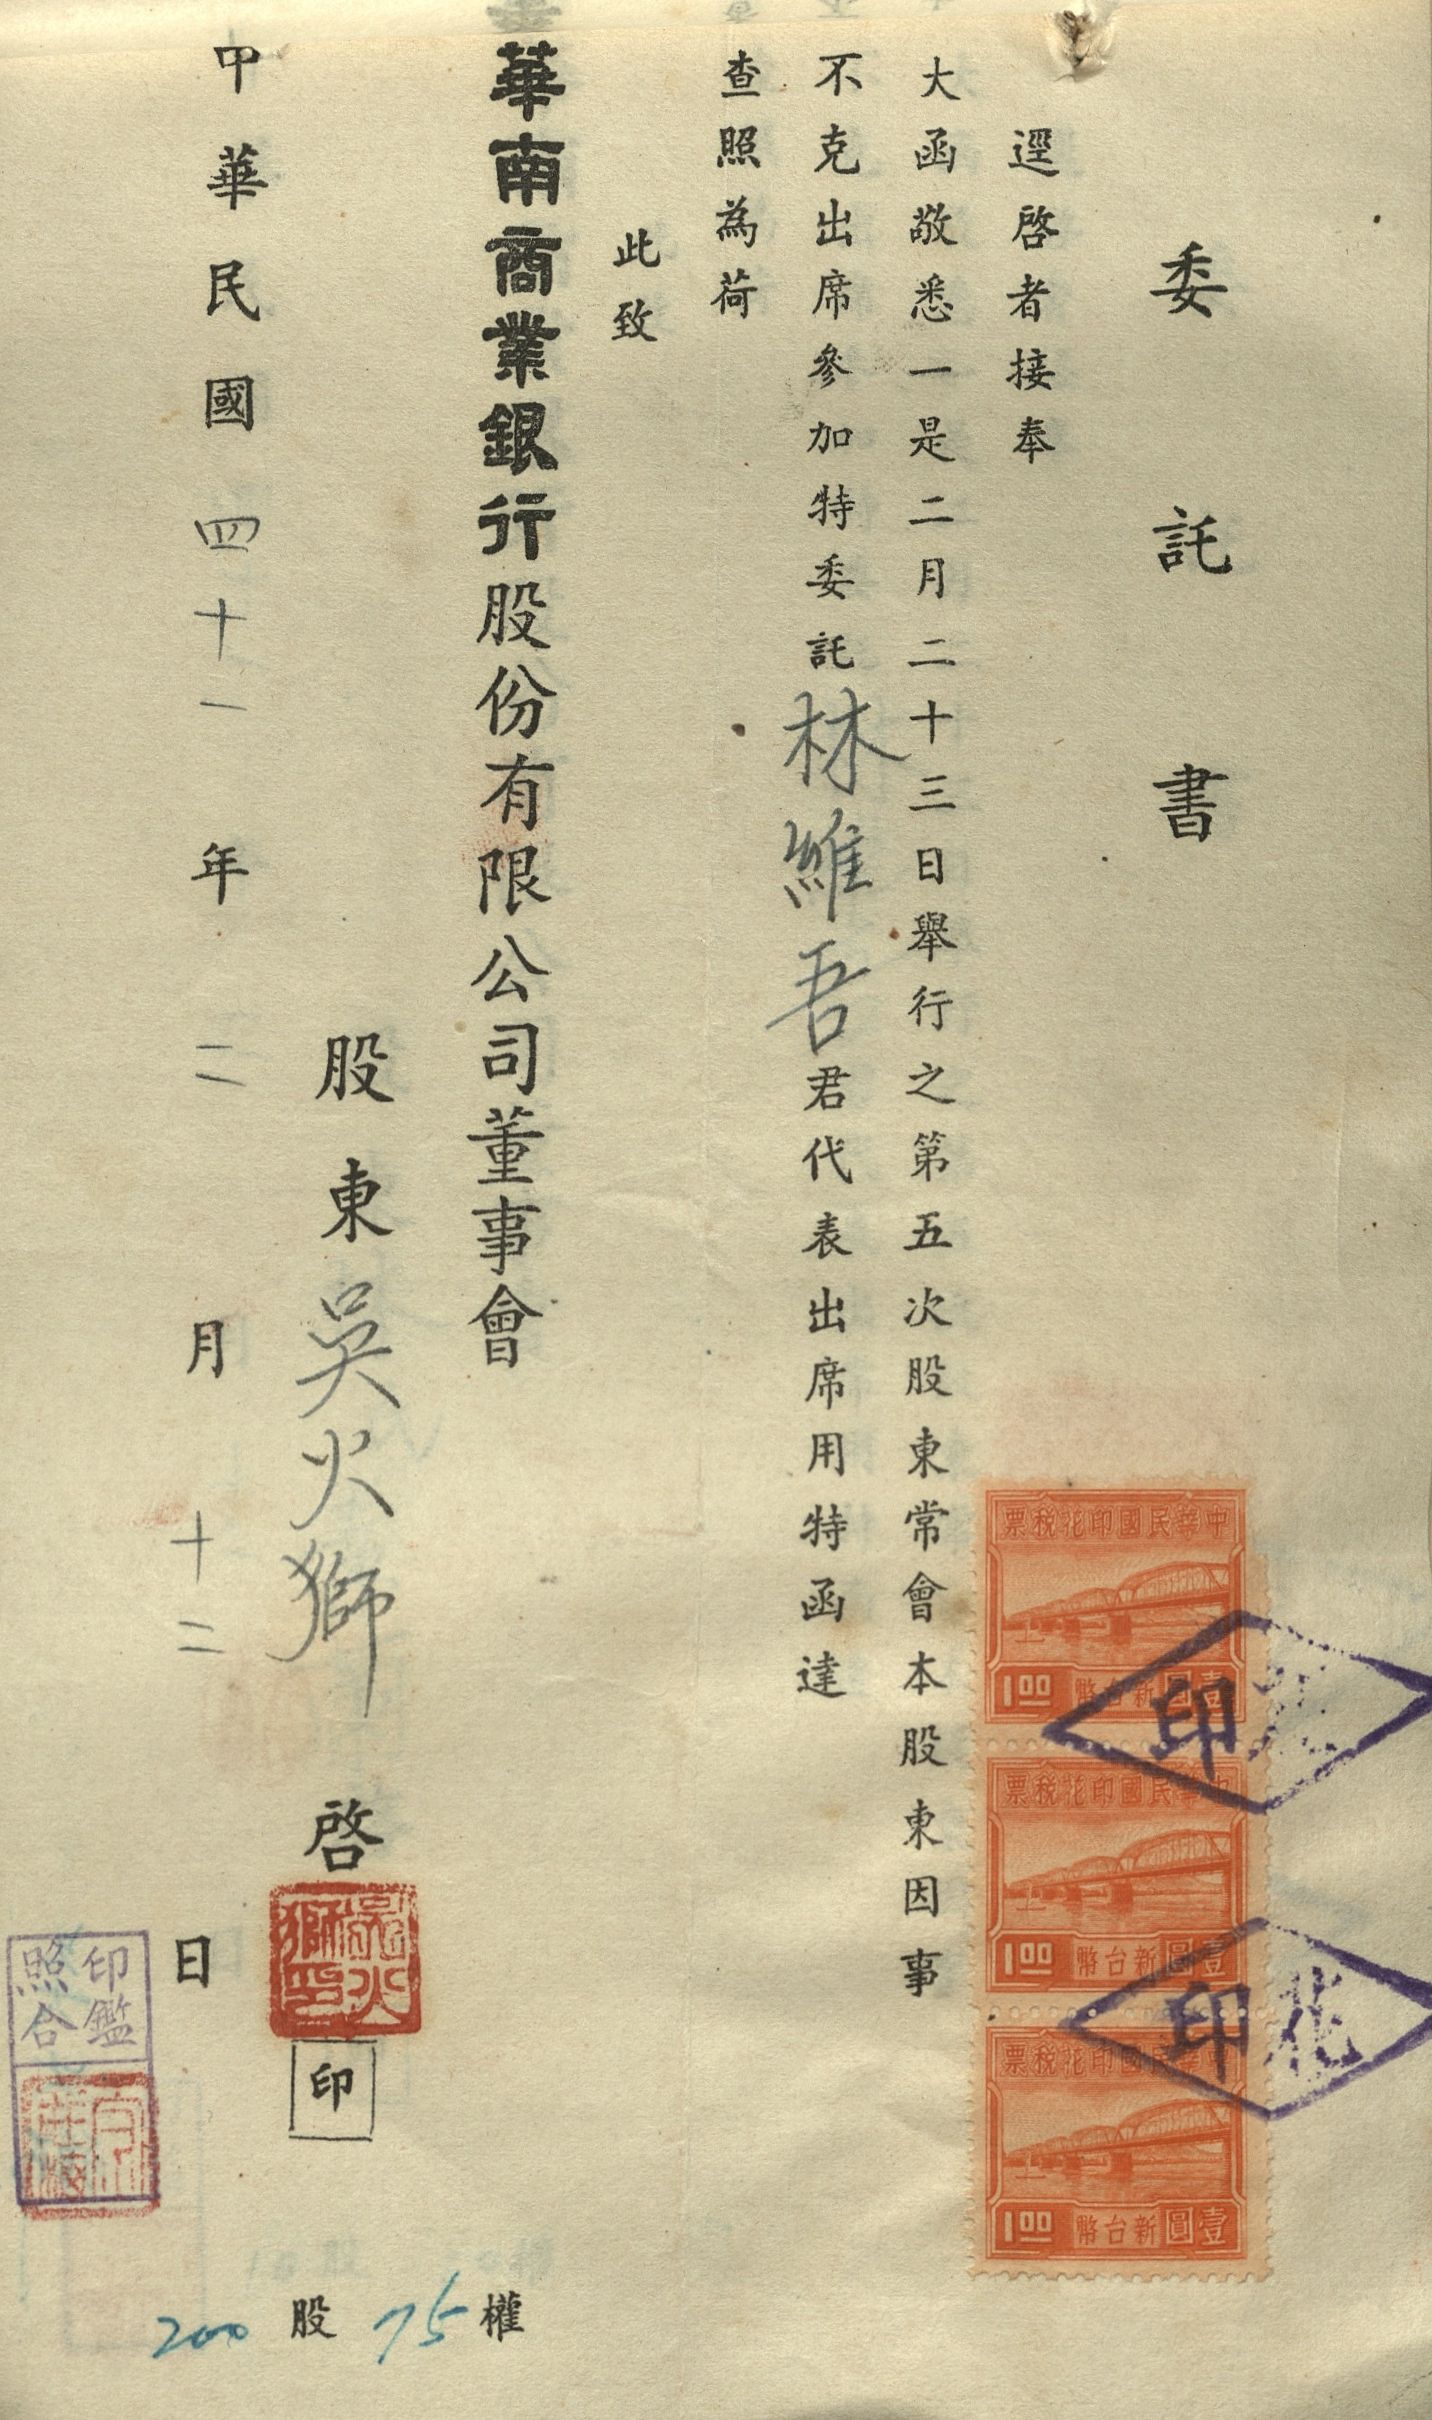 委託書
逕啓者接奉
大函敬悉一是二月二十三日舉行之第五次股東常會本股東因事
不克出席參加特委託林維吾君代表出席用特函達
查照為荷
此致
華南商業銀行股份有限公司董事會
股東吳火獅啓
吳火獅印
印
中華民國四十一年二月十二日
印鑑照合
200股75權
中華民國印花稅票
1.00
新台幣壹圓
中華民國印花稅票
1.00
新台幣壹圓
中華民國印花稅票
1.00
新台幣壹圓
印
花印